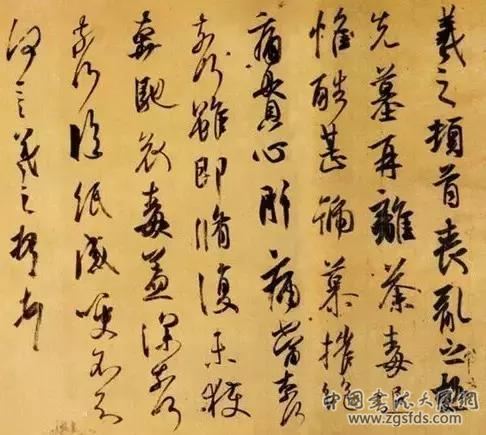 羲之頓首喪亂之極
先墓再離荼毒追
惟酷甚號慕摧絕
痛貫心肝痛當奈何
奈何雖即脩復未獲
奔馳哀毒益深奈何
奈何臨紙感哽不知
何言羲之頓首
中國書法大師網
www.zgsfds.com